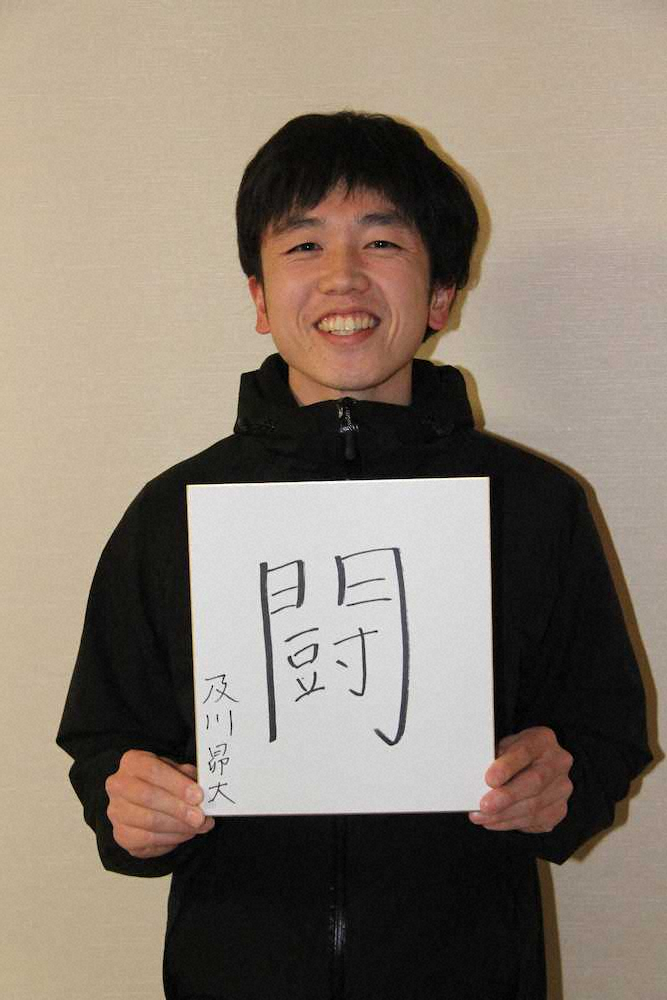 闘
及川昴大